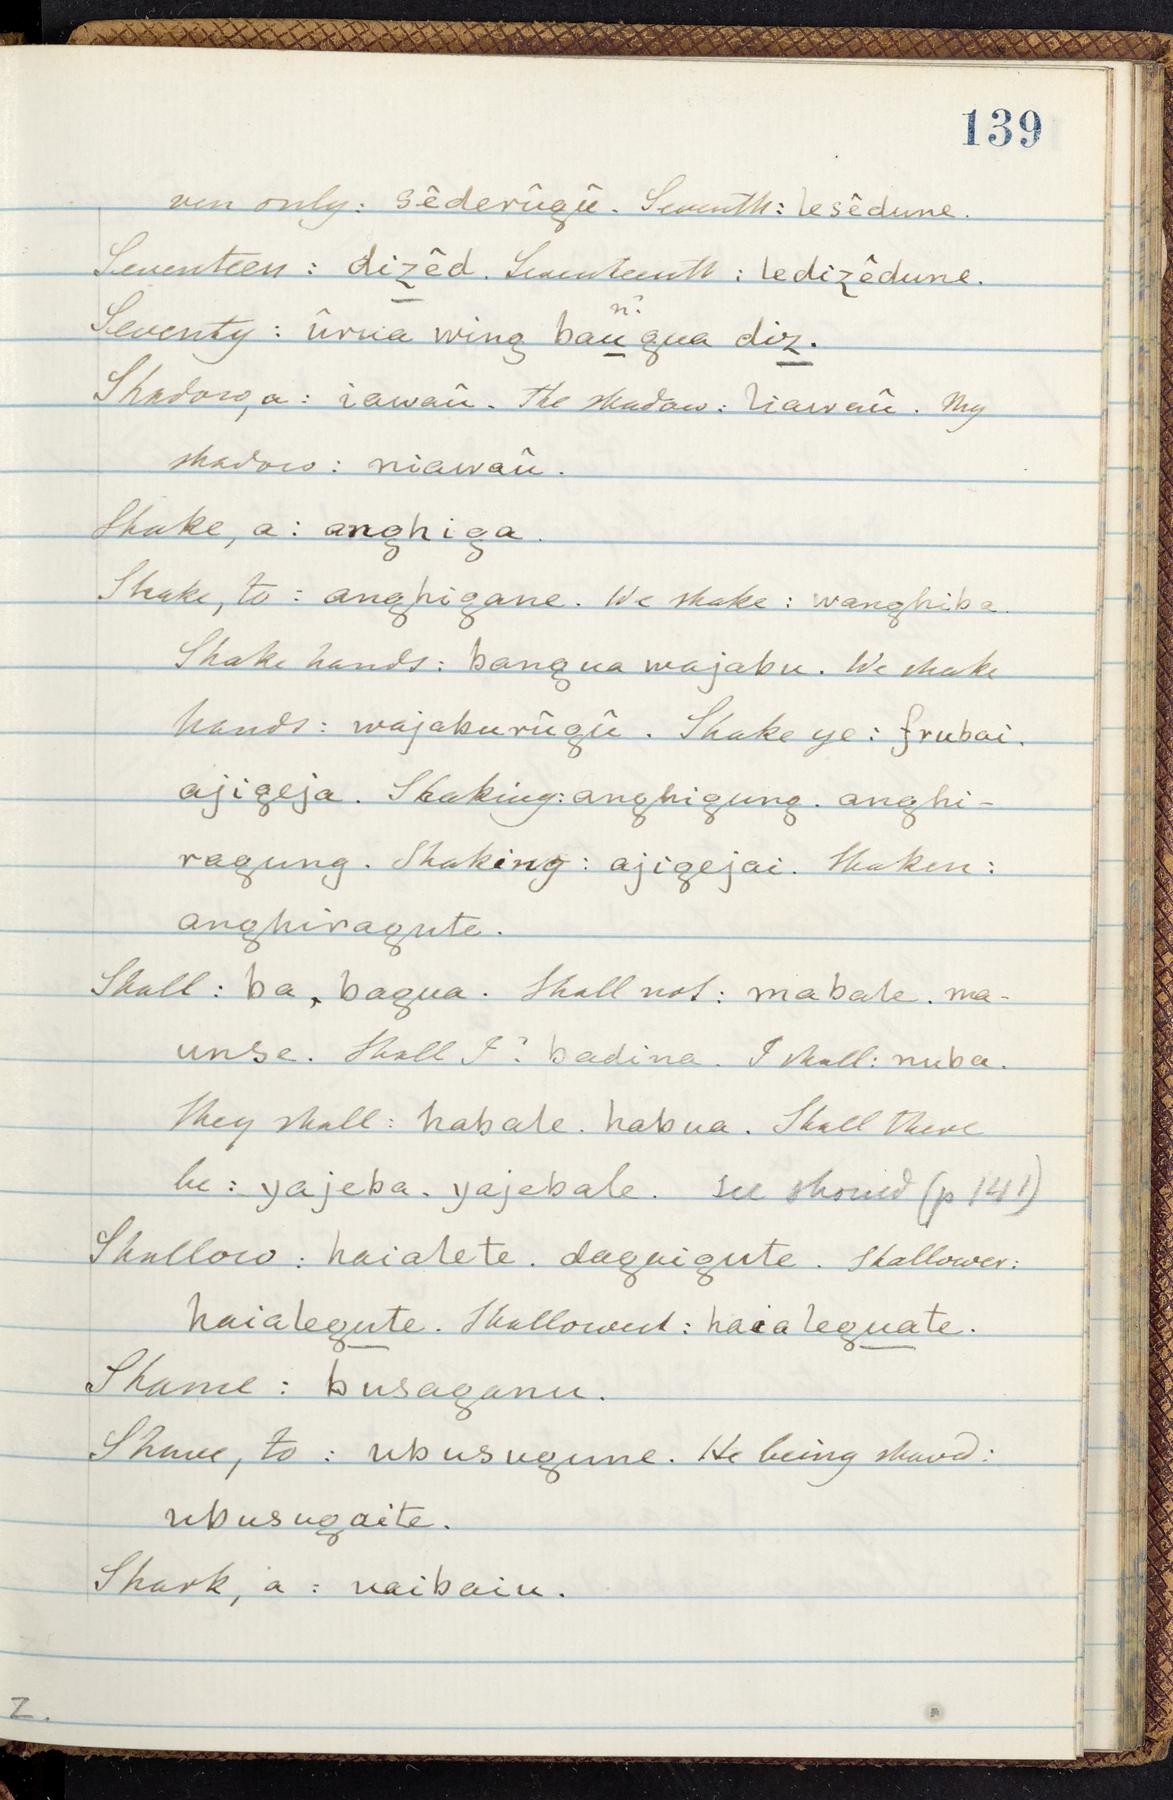 139
ven only: sêderûgû. Seventh: lesêdune.
Seventeen: dizêd. Seventeenth: ledizêdune.
n?
Seventy: ûrua wing baugua diz.
Shadow, a: iawaû. The shadow: liawaû. My
shadow: niawaû.
Shake, a: anghiga.
Shake, to: anghigane. We shake: wanghiba.
Shake hands: bangua wajabu. We shake
hands: wajaburûgû. Shake ye: frubai.
ajigeja. Shaking: anghigung. anghi-
ragung. Shaking: ajigejai. Shaken:
anghiragute.
Shall: ba, bagua. Shall not: mabale. ma-
unse. Shall I? badina. I shall: nuba.
They shall: habale. habua. Shall there
be: yajeba. yajebale. see should (p 141)
Shallow: haialete. daguigute. Shallower:
haialegute. Shallowest: haialeguate.
Shame: busaganu.
Shave, to: ubusugune. He being shaved:
ubusugaite.
Shark, a: uaibaiu.
Z.